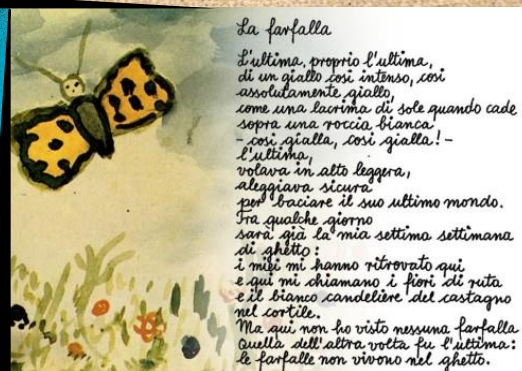 La farfalla
L'ultima, proprio l'ultima,
di un giallo così intenso, così
assolutamente giallo,
come una lacrima di sole quando cade
sopra una roccia bianca
- così gialla, così gialla! -
l'ultima,
volava in alto leggera,
aleggiava sicura
per baciare il suo ultimo mondo.
Fra qualche giorno
sarà già la mia settima settimana
di ghetto:
i miei mi hanno ritrovato qui
e qui mi chiamano i fiori di ruta
e il bianco candeliere del castagno
nel cortile.
Ma qui non ho visto nessuna farfalla
Quella dell'altra volta fu l'ultima:
le farfalle non vivono nel ghetto.